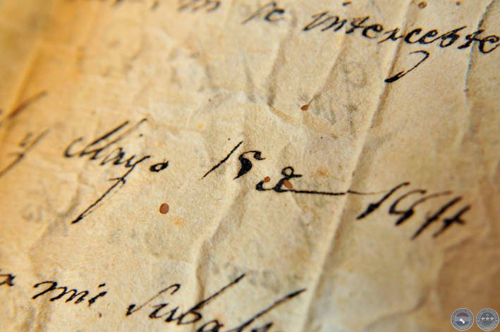 se intercepte
y Mayo 15 de 1811
a mis Subal